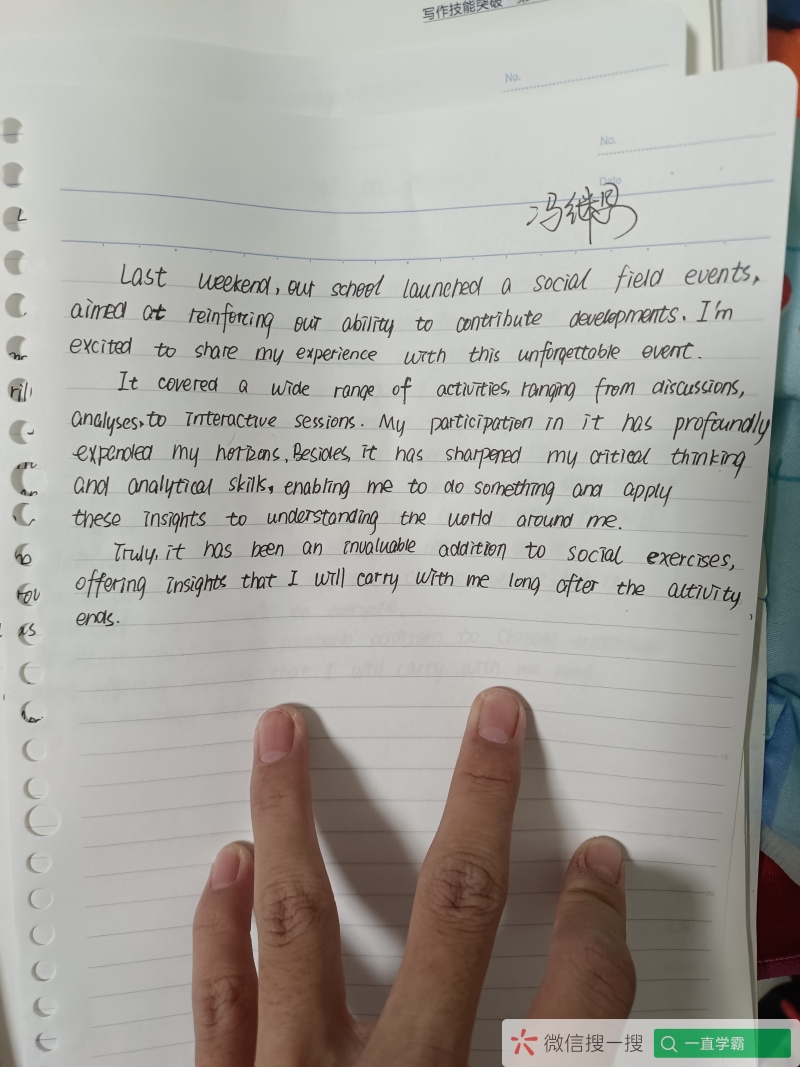 写作技能突破
No.
No.
Date
冯继
Last weekend, our school launched a social field events,
aimed at reinforcing our ability to contribute developments. I'm
excited to share my experience with this unforgettable event.
It covered a wide range of activities, ranging from discussions,
analyses, to interactive sessions. My participation in it has profoundly
expanded my horizons. Besides, it has sharpened my critical thinking
and analytical skills, enabling me to do something and apply
these insights to understanding the world around me.
Truly, it has been an invaluable addition to social exercises,
offering insights that I will carry with me long after the activity
ends.
微信搜一搜
一直学霸